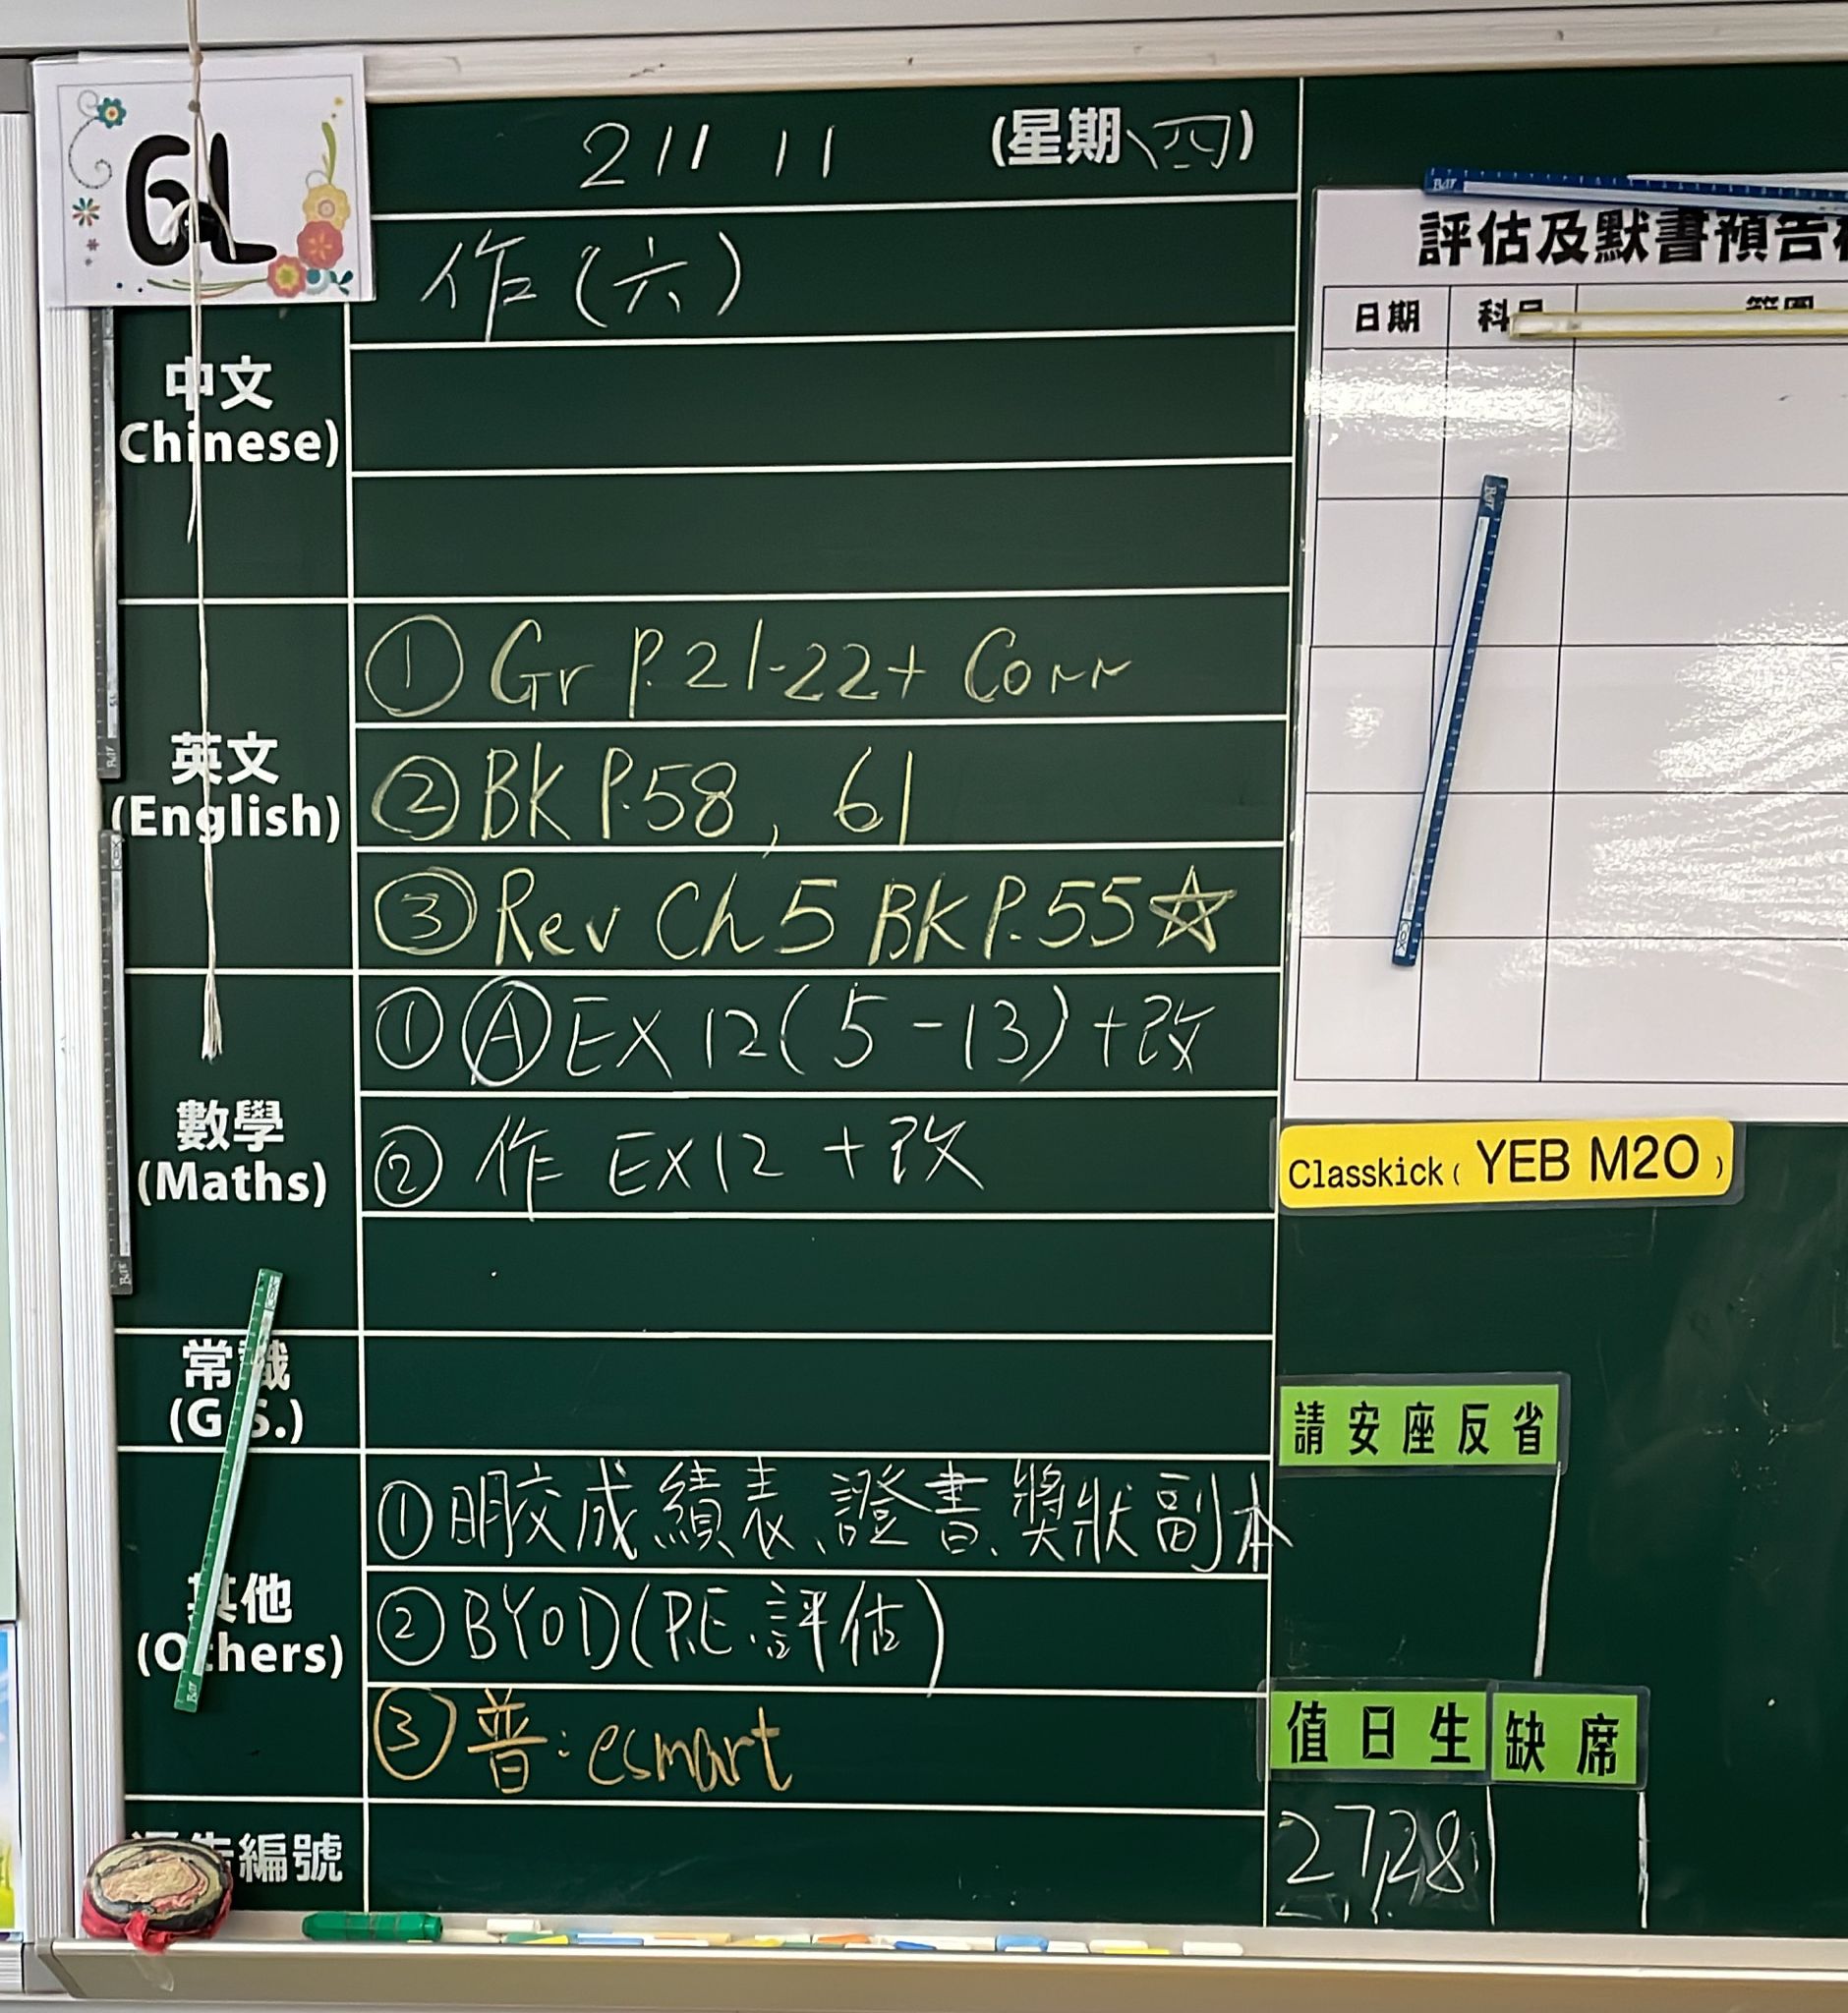 6L
211 11 (星期四)
作(六)
中文
Chinese)
英文
(English)
① Gr P.21-22+ Corr
② BK P.58, 61
③ Rev Ch 5 BK P.55☆
數學
(Maths)
① Ⓐ EX 12(5-13)+改
② 作 EX12 +改
常識
(G.S.)
其他
(Others)
①明交成績表、證書、獎狀副本
② BYOD(P.E.評估)
③ 普:esmart
告編號
評估及默書預告
日期 科目 範圍
Classkick( YEB M2O )
請安座反省
值日生 缺席
27,28